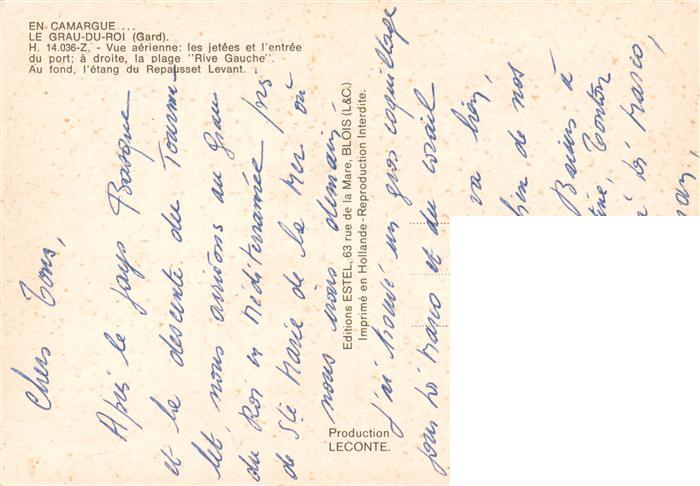 EN CAMARGUE ...
LE GRAU-DU-ROI (Gard).
H. 14.036-Z. - Vue aérienne: les jetées et l'entrée
du port; à droite, la plage "Rive Gauche".
Au fond, l'étang du Repausset Levant.
Editions ESTEL, 63 rue de la Mare, BLOIS (L&C.)
Imprimé en Hollande - Reproduction Interdite.
Production
LECONTE.
Chers Tous,
Après le pays Basque
et la descente du Tourma
let, nous arrivons au Grau
du Roi en Méditerranée près
de Ste Marie de la Mer où
nous irons demain.
J'ai trouvé un gros coquillage
pour Marco et du corail
va bien,
de nos
Baisers à
Tonton
Marco,